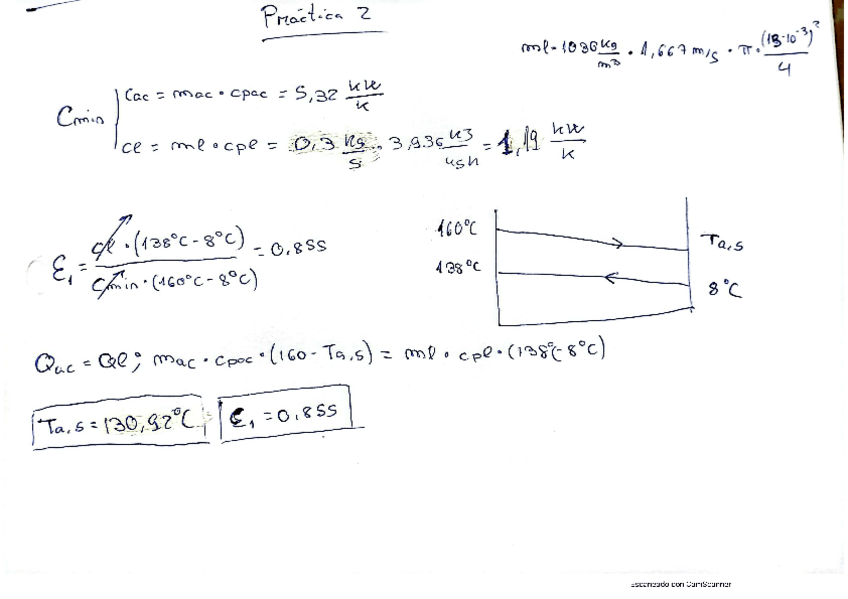 Práctica 2
ml = 1036 kg/m³ · 1,667 m/s · π · (15·10⁻³)²/4
Cmin
Cac = mac · cpac = 5,32 kW/K
cl = ml · cpl = 0,3 kg/s · 3,936 kJ/kgK = 1,19 kW/K
ε₁ = cl · (138°C - 8°C) / Cmin · (160°C - 8°C) = 0,855
160°C
Ta,s
138°C
8°C
Qac = Ql; mac · cpac · (160 - Ta,s) = ml · cpl · (138°C - 8°C)
Ta,s = 130,92°C
ε₁ = 0,855
Escaneado con CamScanner